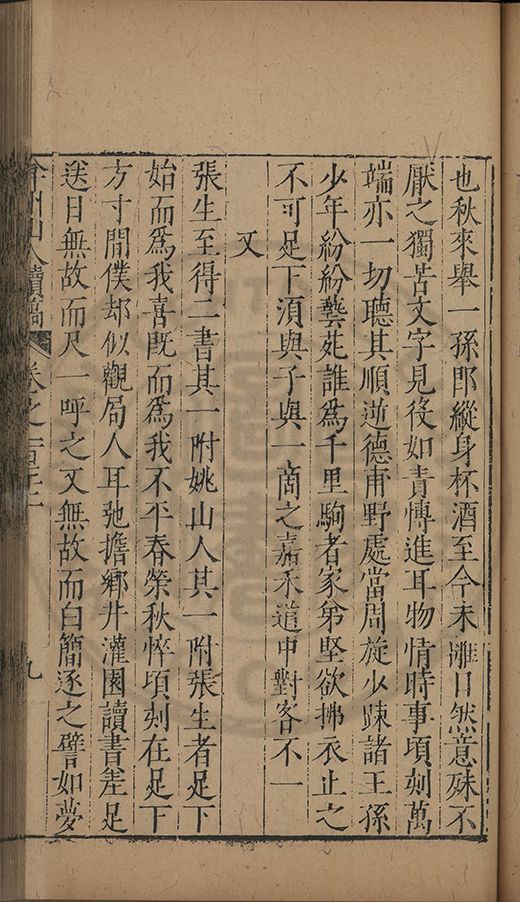 也秋來舉一孫郎縱身杯酒至今未離口然意殊不
厭之獨苦文字見役如責慱進耳物情時事頃刻萬
端亦一切聽其順逆德甫野處當周旋少踈諸王孫
少年紛紛藝苑誰爲千里駒者家弟堅欲拂衣止之
不可足下須與子與一商之嘉禾道中對客不一
又
張生至得二書其一附姚山人其一附張生者足下
始而爲我喜旣而爲我不平春榮秋悴頃刻在足下
方寸間僕却似觀局人耳弛擔鄉井灌園讀書差足
送日無故而尺一呼之又無故而白簡逐之譬如夢
弇州山人續稿 卷之一百 九